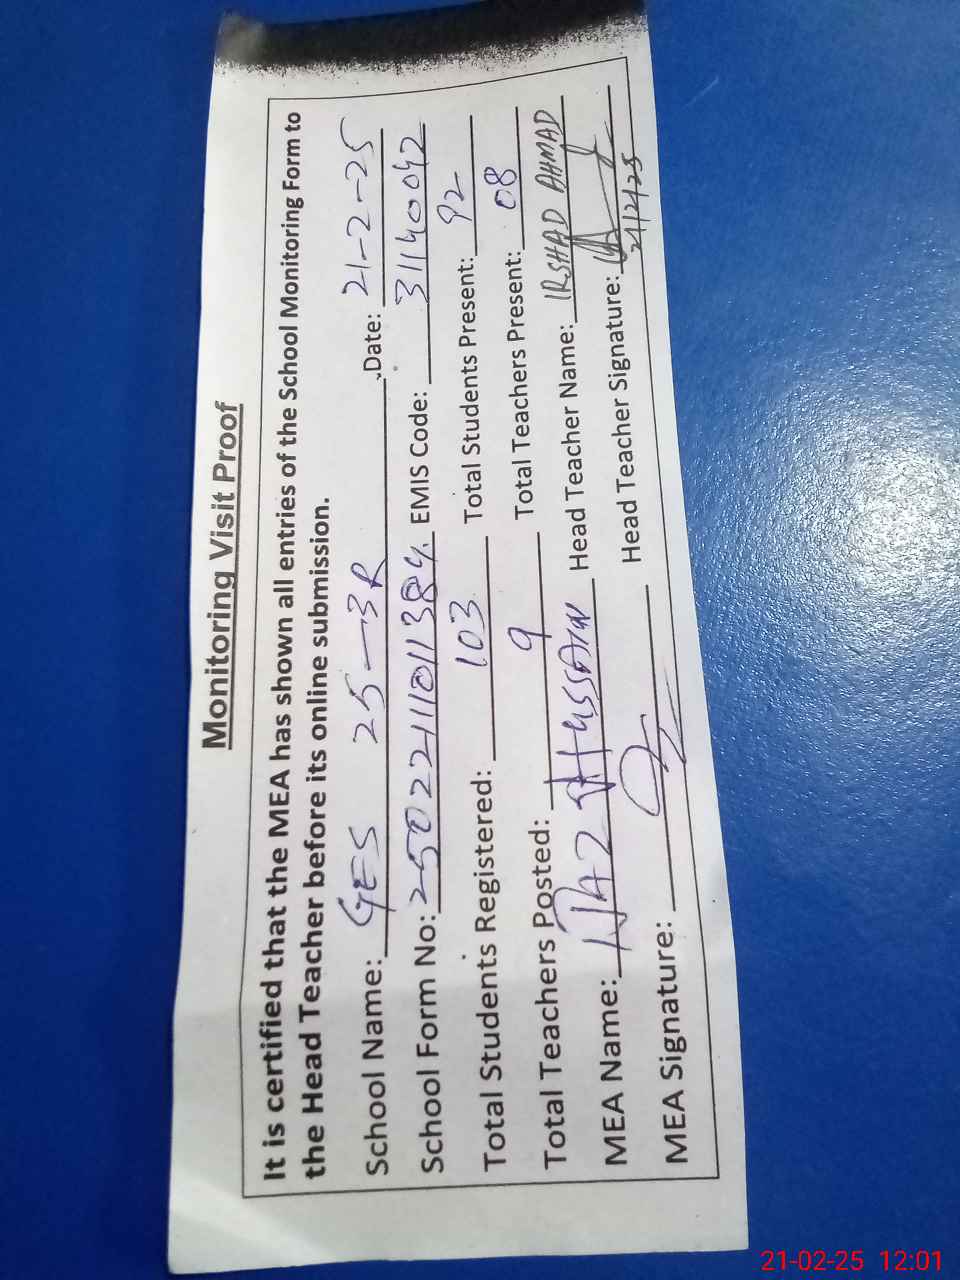 Monitoring Visit Proof
It is certified that the MEA has shown all entries of the School Monitoring Form to
the Head Teacher before its online submission.
School Name: GES 25-3R Date: 21-2-25
School Form No: EMIS Code: 31140042
Total Students Registered: 103 Total Students Present: 92
Total Teachers Posted: 9 Total Teachers Present: 08
MEA Name: HUSSAIN Head Teacher Name: IRSHAD AHMAD
MEA Signature: Head Teacher Signature:
21/2/25
21-02-25 12:01